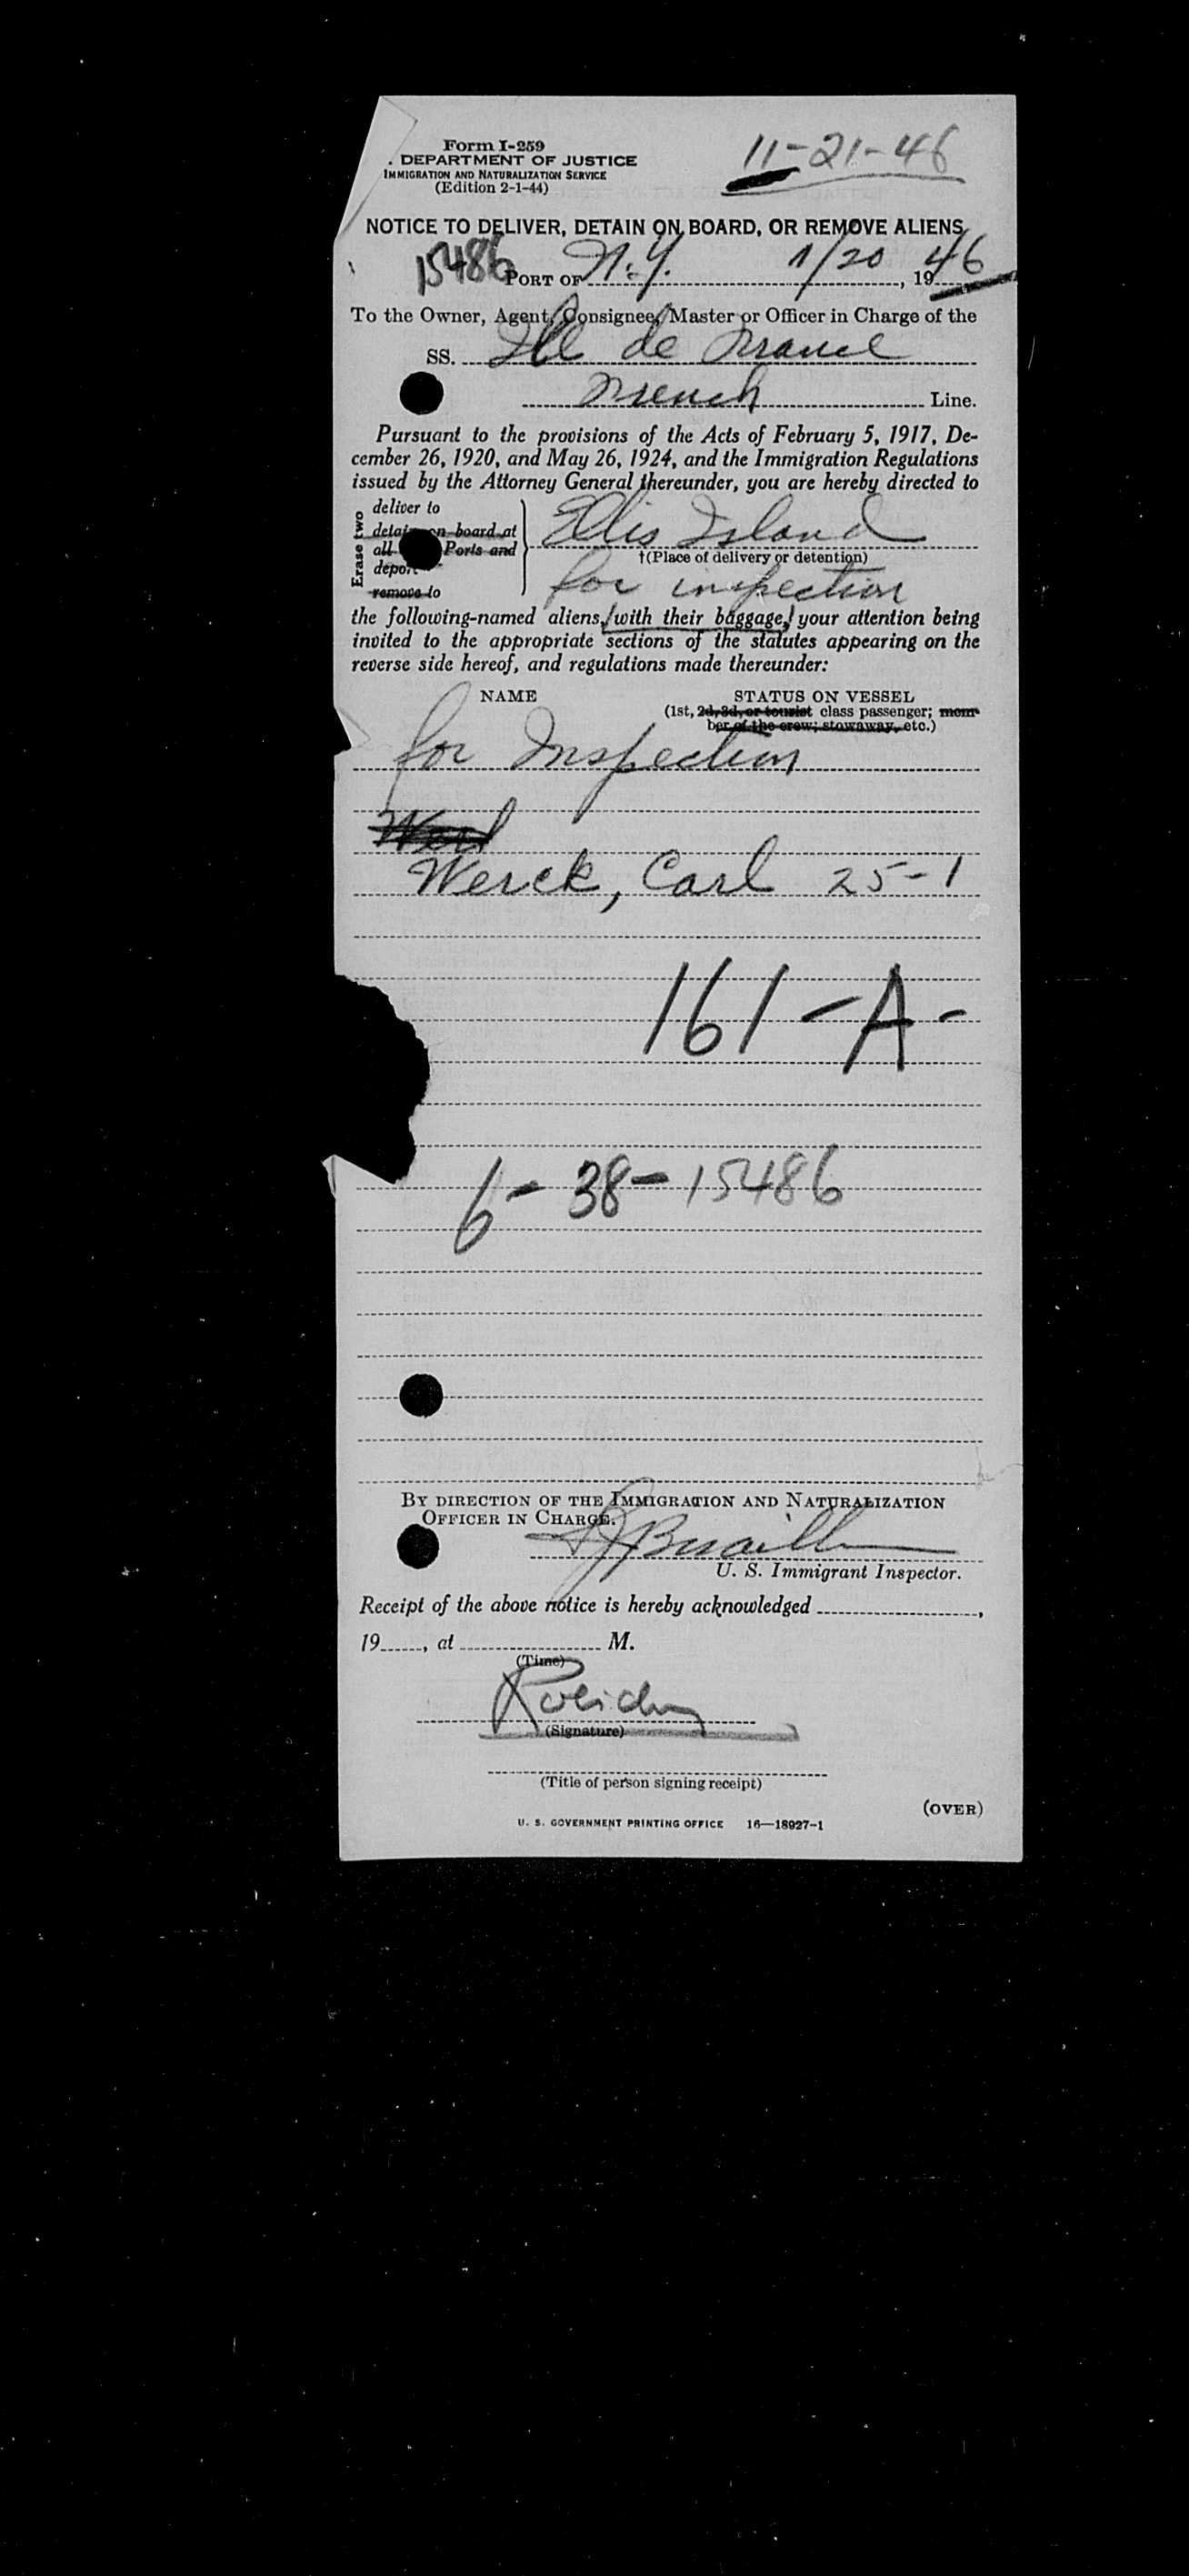 Form I-259
11-21-46
. DEPARTMENT OF JUSTICE
IMMIGRATION AND NATURALIZATION SERVICE
(Edition 2-1-44)
NOTICE TO DELIVER, DETAIN ON BOARD, OR REMOVE ALIENS
15486 PORT OF N.Y. 11/20, 1946
To the Owner, Agent, Consignee, Master or Officer in Charge of the
SS. Ile de France
French Line.
Pursuant to the provisions of the Acts of February 5, 1917, De-
cember 26, 1920, and May 26, 1924, and the Immigration Regulations
issued by the Attorney General thereunder, you are hereby directed to
Erase two
deliver to
detain on board at
all Ports and
depor
remove to
Ellis Island
†(Place of delivery or detention)
for inspection
the following-named aliens, with their baggage, your attention being
invited to the appropriate sections of the statutes appearing on the
reverse side hereof, and regulations made thereunder:
NAME STATUS ON VESSEL
(1st, 2d, 3d, or tourist class passenger; mem-
ber of the crew; stowaway, etc.)
for Inspection
Werck, Carl 25-1
161-A-
6-38-15486
BY DIRECTION OF THE IMMIGRATION AND NATURALIZATION
OFFICER IN CHARGE.
U. S. Immigrant Inspector.
Receipt of the above notice is hereby acknowledged ,
19 , at M.
(Time)
(Signature)
(Title of person signing receipt)
(OVER)
U. S. GOVERNMENT PRINTING OFFICE 16—18927-1